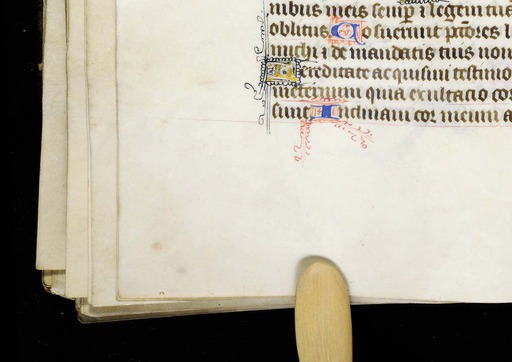 nibus meis semp̄ ⁊ legem tuā
oblitus Posuerunt pctōres l
michi ⁊ de mandatis tuis non
Hereditate acquisiui testimo
in eternum quia exultacio cor
sunt Inclinaui cor meum a